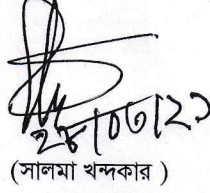 ২৮।০৩।২১
(সালমা খন্দকার )